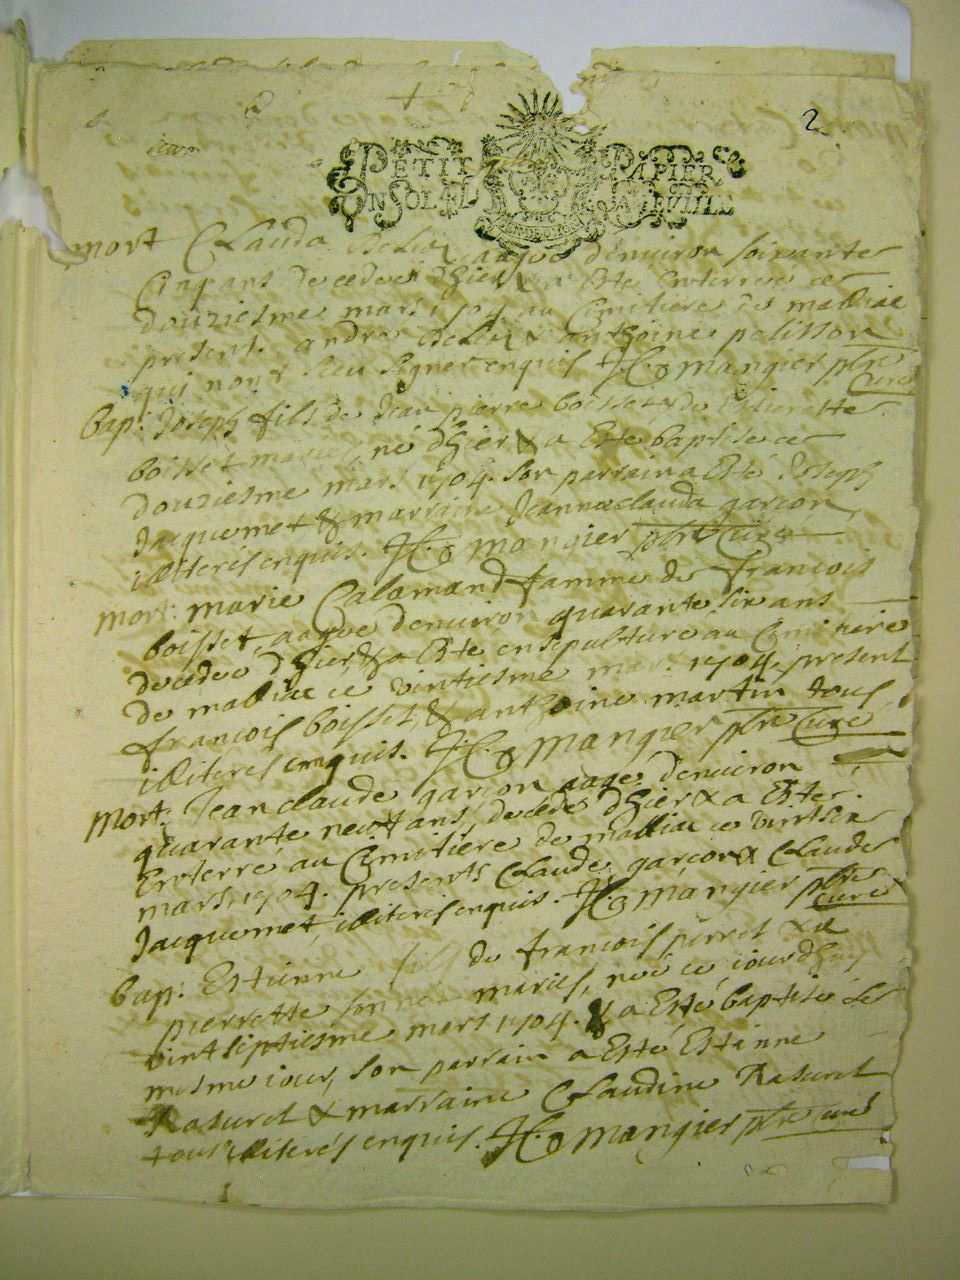 2
PETIT PAPIER
UN SOL LA FEUILLE
mort Clauda aagée denuiron soixante
cinq ans decedee dhier & a Esté Enterree ce
douziesme mars 1704 au Cimitiere de malliac
present andre & anthoine pelisson
qui nont sceu signer enquis H. Mangier pbre
Curé
bap: Joseph fils de Jean pierre boisset & de pierrette
boisset mariez, né dhier & a Esté baptise ce
douziesme mars 1704. son parrain a Esté Joseph
Jacquemet & marraine Jeanne clauda garcon,
illiteres enquis. H. Mangier pbre Curé
mort: marie Calamand famme de françois
boisset, aagee denuiron quarante six ans
decedee dhier, & a Esté ensepulture au Cimitiere
de malliac ce vintiesme mars 1704, present
françois boisset, & anthoine martin tous
illiteres enquis. H. Mangier pbre Curé
mort: Jean claude garcon aagé denuiron
quarante neuf ans, decedé dhier & a Esté
Enterre au Cimitiere de malliac ce vintsix
mars 1704. presents Claude garcon & Claude
Jacquemet, illiteres enquis. H. Mangier pbre
curé
bap: Estienne fils de françois perret & de
pierrette mariés, né ce jourdhuy
vintseptiesme mars 1704. & a Esté baptisé le
mesme jour, son parrain a Esté Estienne
Raturet & marraine Claudine Raturet
tous illiterés enquis. H. Mangier pbre curé